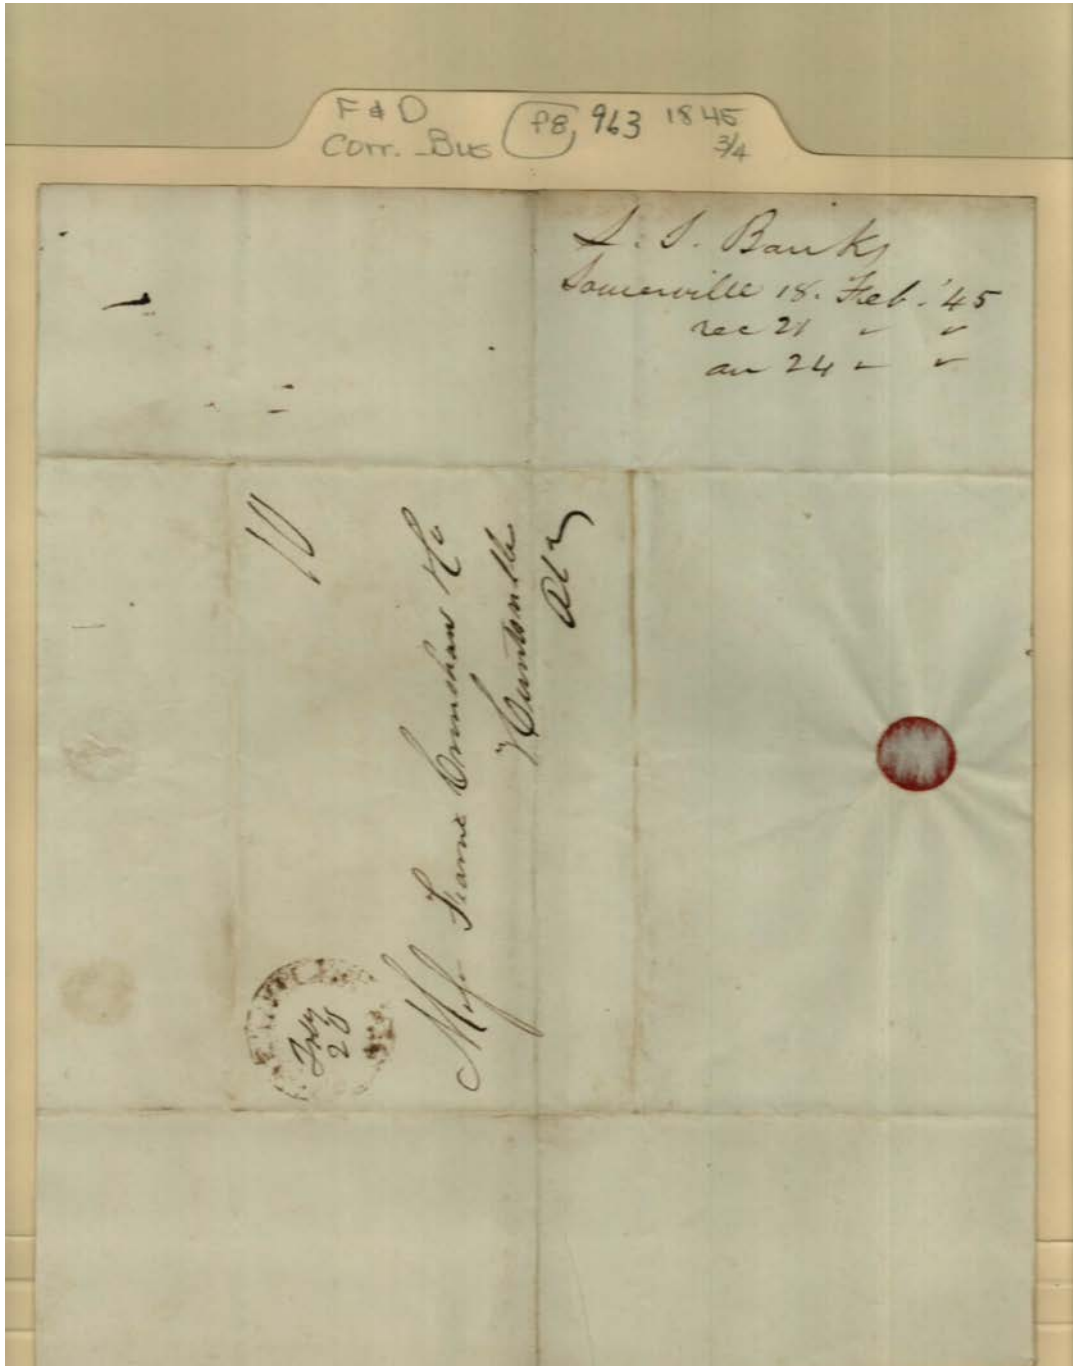 F & D
Corr. - Bus
P8, 963 1845
3/4
S. S. Banks
Somerville 18. Feb. '45
rec 21 " "
an 24 " "
10
Fearne Crenshaw & Co
Huntsville
Ala
20